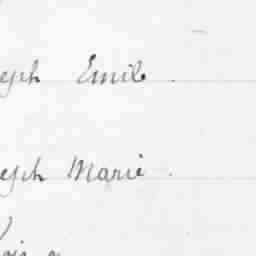 eph Emile
eph Marie